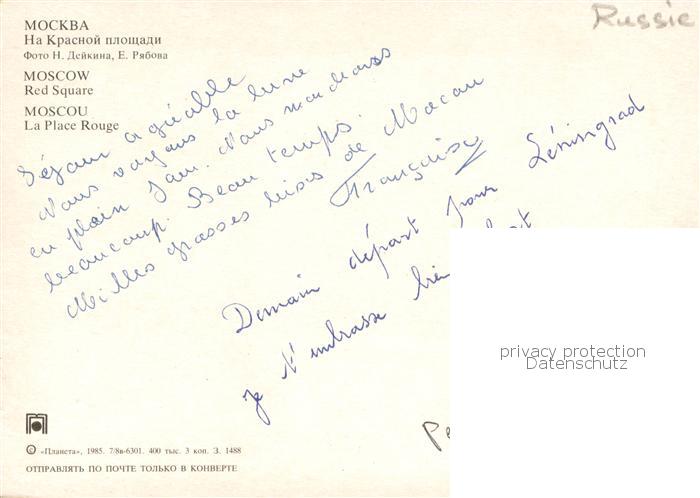 МОСКВА
На Красной площади
Фото Н. Дейкина, Е. Рябова
MOSCOW
Red Square
MOSCOU
La Place Rouge
Russie
Séjour agréable
Nous voyons la lune
en plein jour. Nous marchons
beaucoup. Beau temps.
Milles grosses bises de Macau
Françoise
Demain départ pour Léningrad
je t'embrasse
privacy protection
Datenschutz
© «Планета», 1985. 7/8в-6301. 400 тыс. 3 коп. З. 1488
ОТПРАВЛЯТЬ ПО ПОЧТЕ ТОЛЬКО В КОНВЕРТЕ